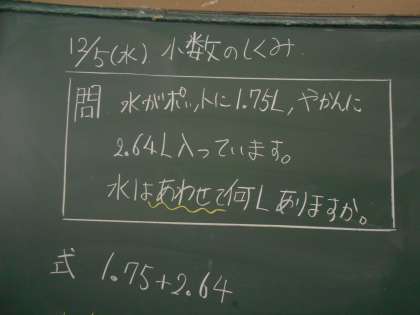 12/5(水) 小数のしくみ
問 水がポットに1.75L,やかんに
2.64L入っています。
水はあわせて何Lありますか。
式 1.75+2.64